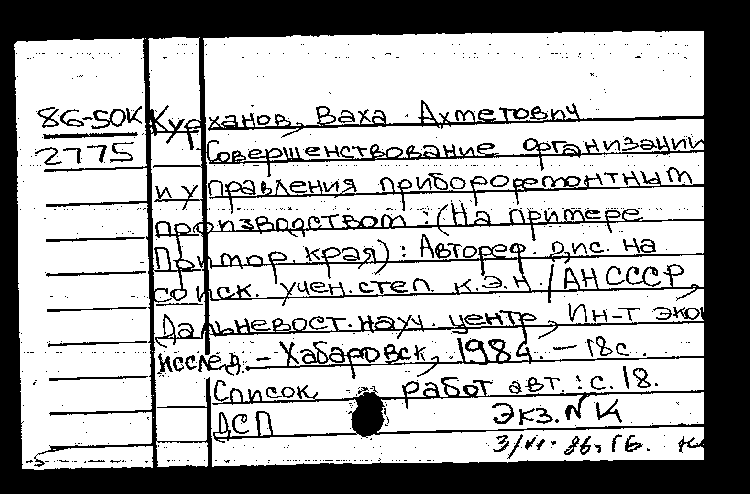 86-50К Курханов, Ваха Ахметович
2775 Совершенствование организации
и управления прибороремонтным
производством : (На примере
Примор. края) : Автореф. дис. на
соиск. учен. степ. к.э.н. / АН СССР,
Дальневост. науч. центр, Ин-т экон
исслед. - Хабаровск, 1984. - 18 с.
Список работ авт. : с. 18.
ДСП Экз. № К
3/VI-86, ГБ.